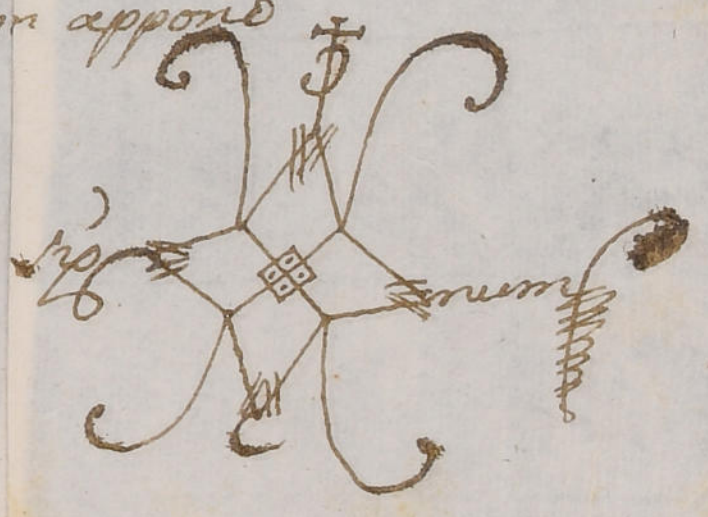 appono
Sig num